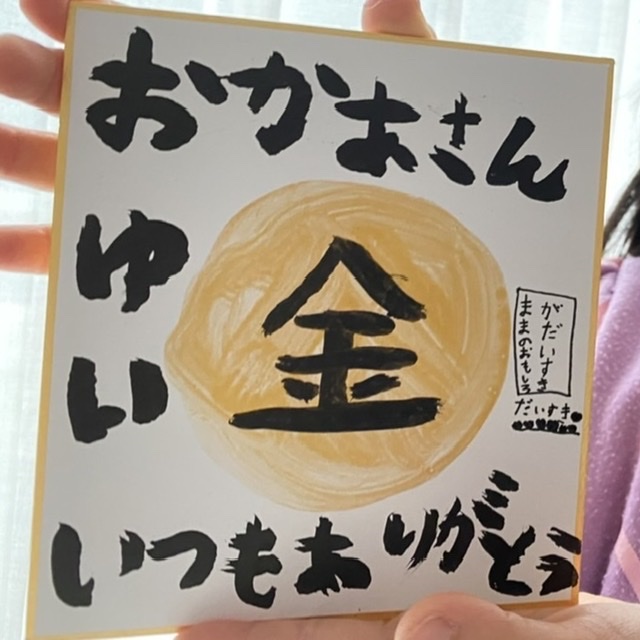 おかあさん
ゆい
金
ままのおもしろ
がだいすき
だいすき
いつもありがとう